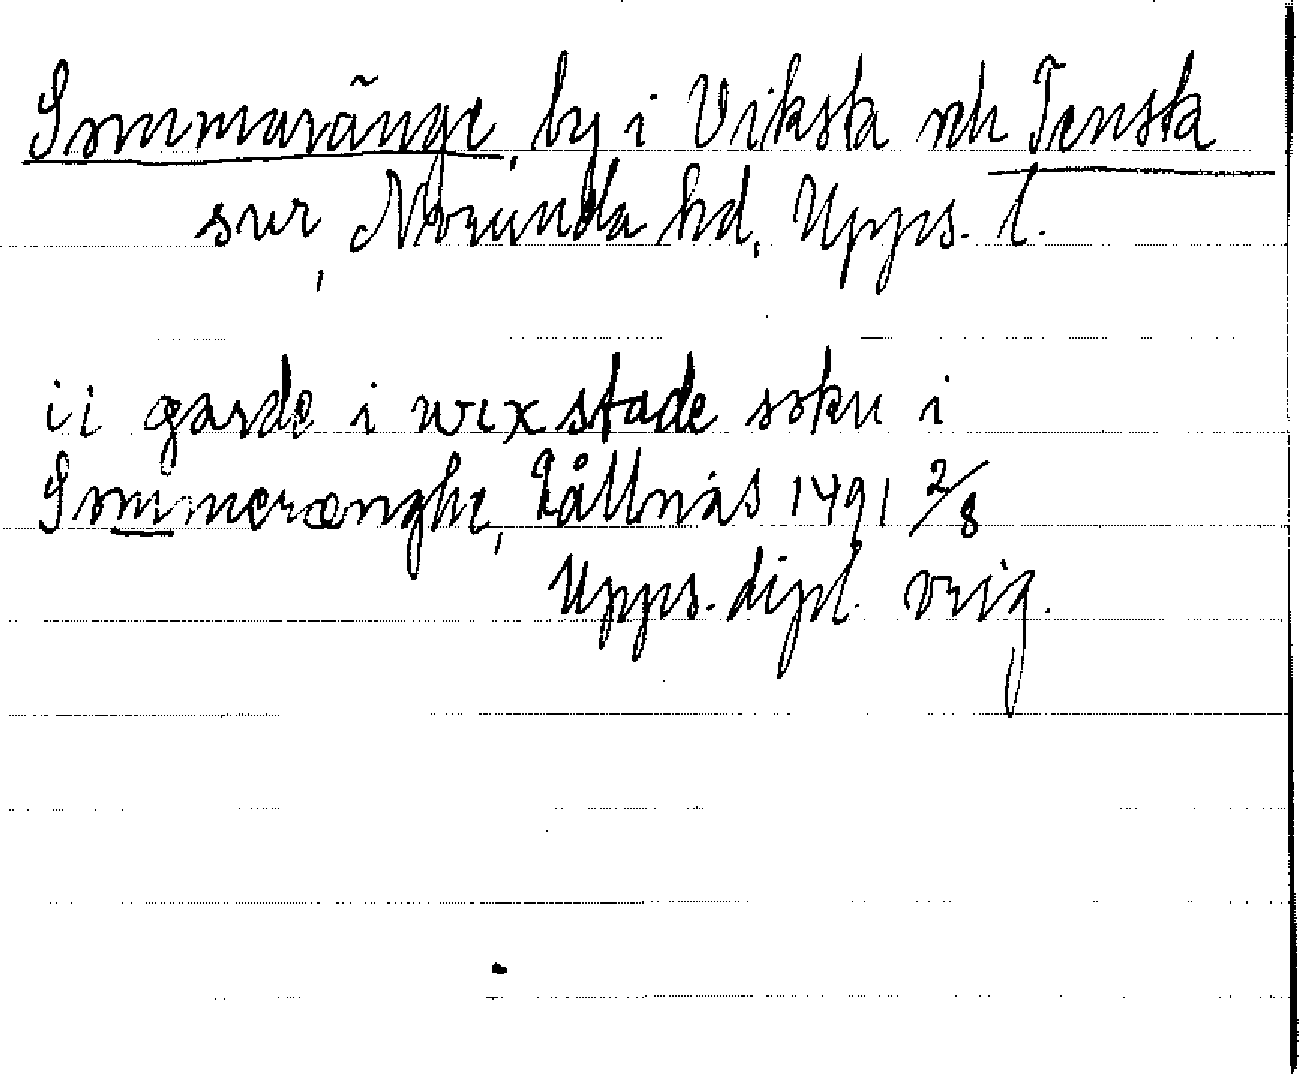 Sommaränge, by i Viksta och Tensta
snr, Norunda hd, Upps. l.
ii garde i wixstade sokn i
Sommerænghe, Tållnäs 1491 2/8
Upps. dipl. orig.